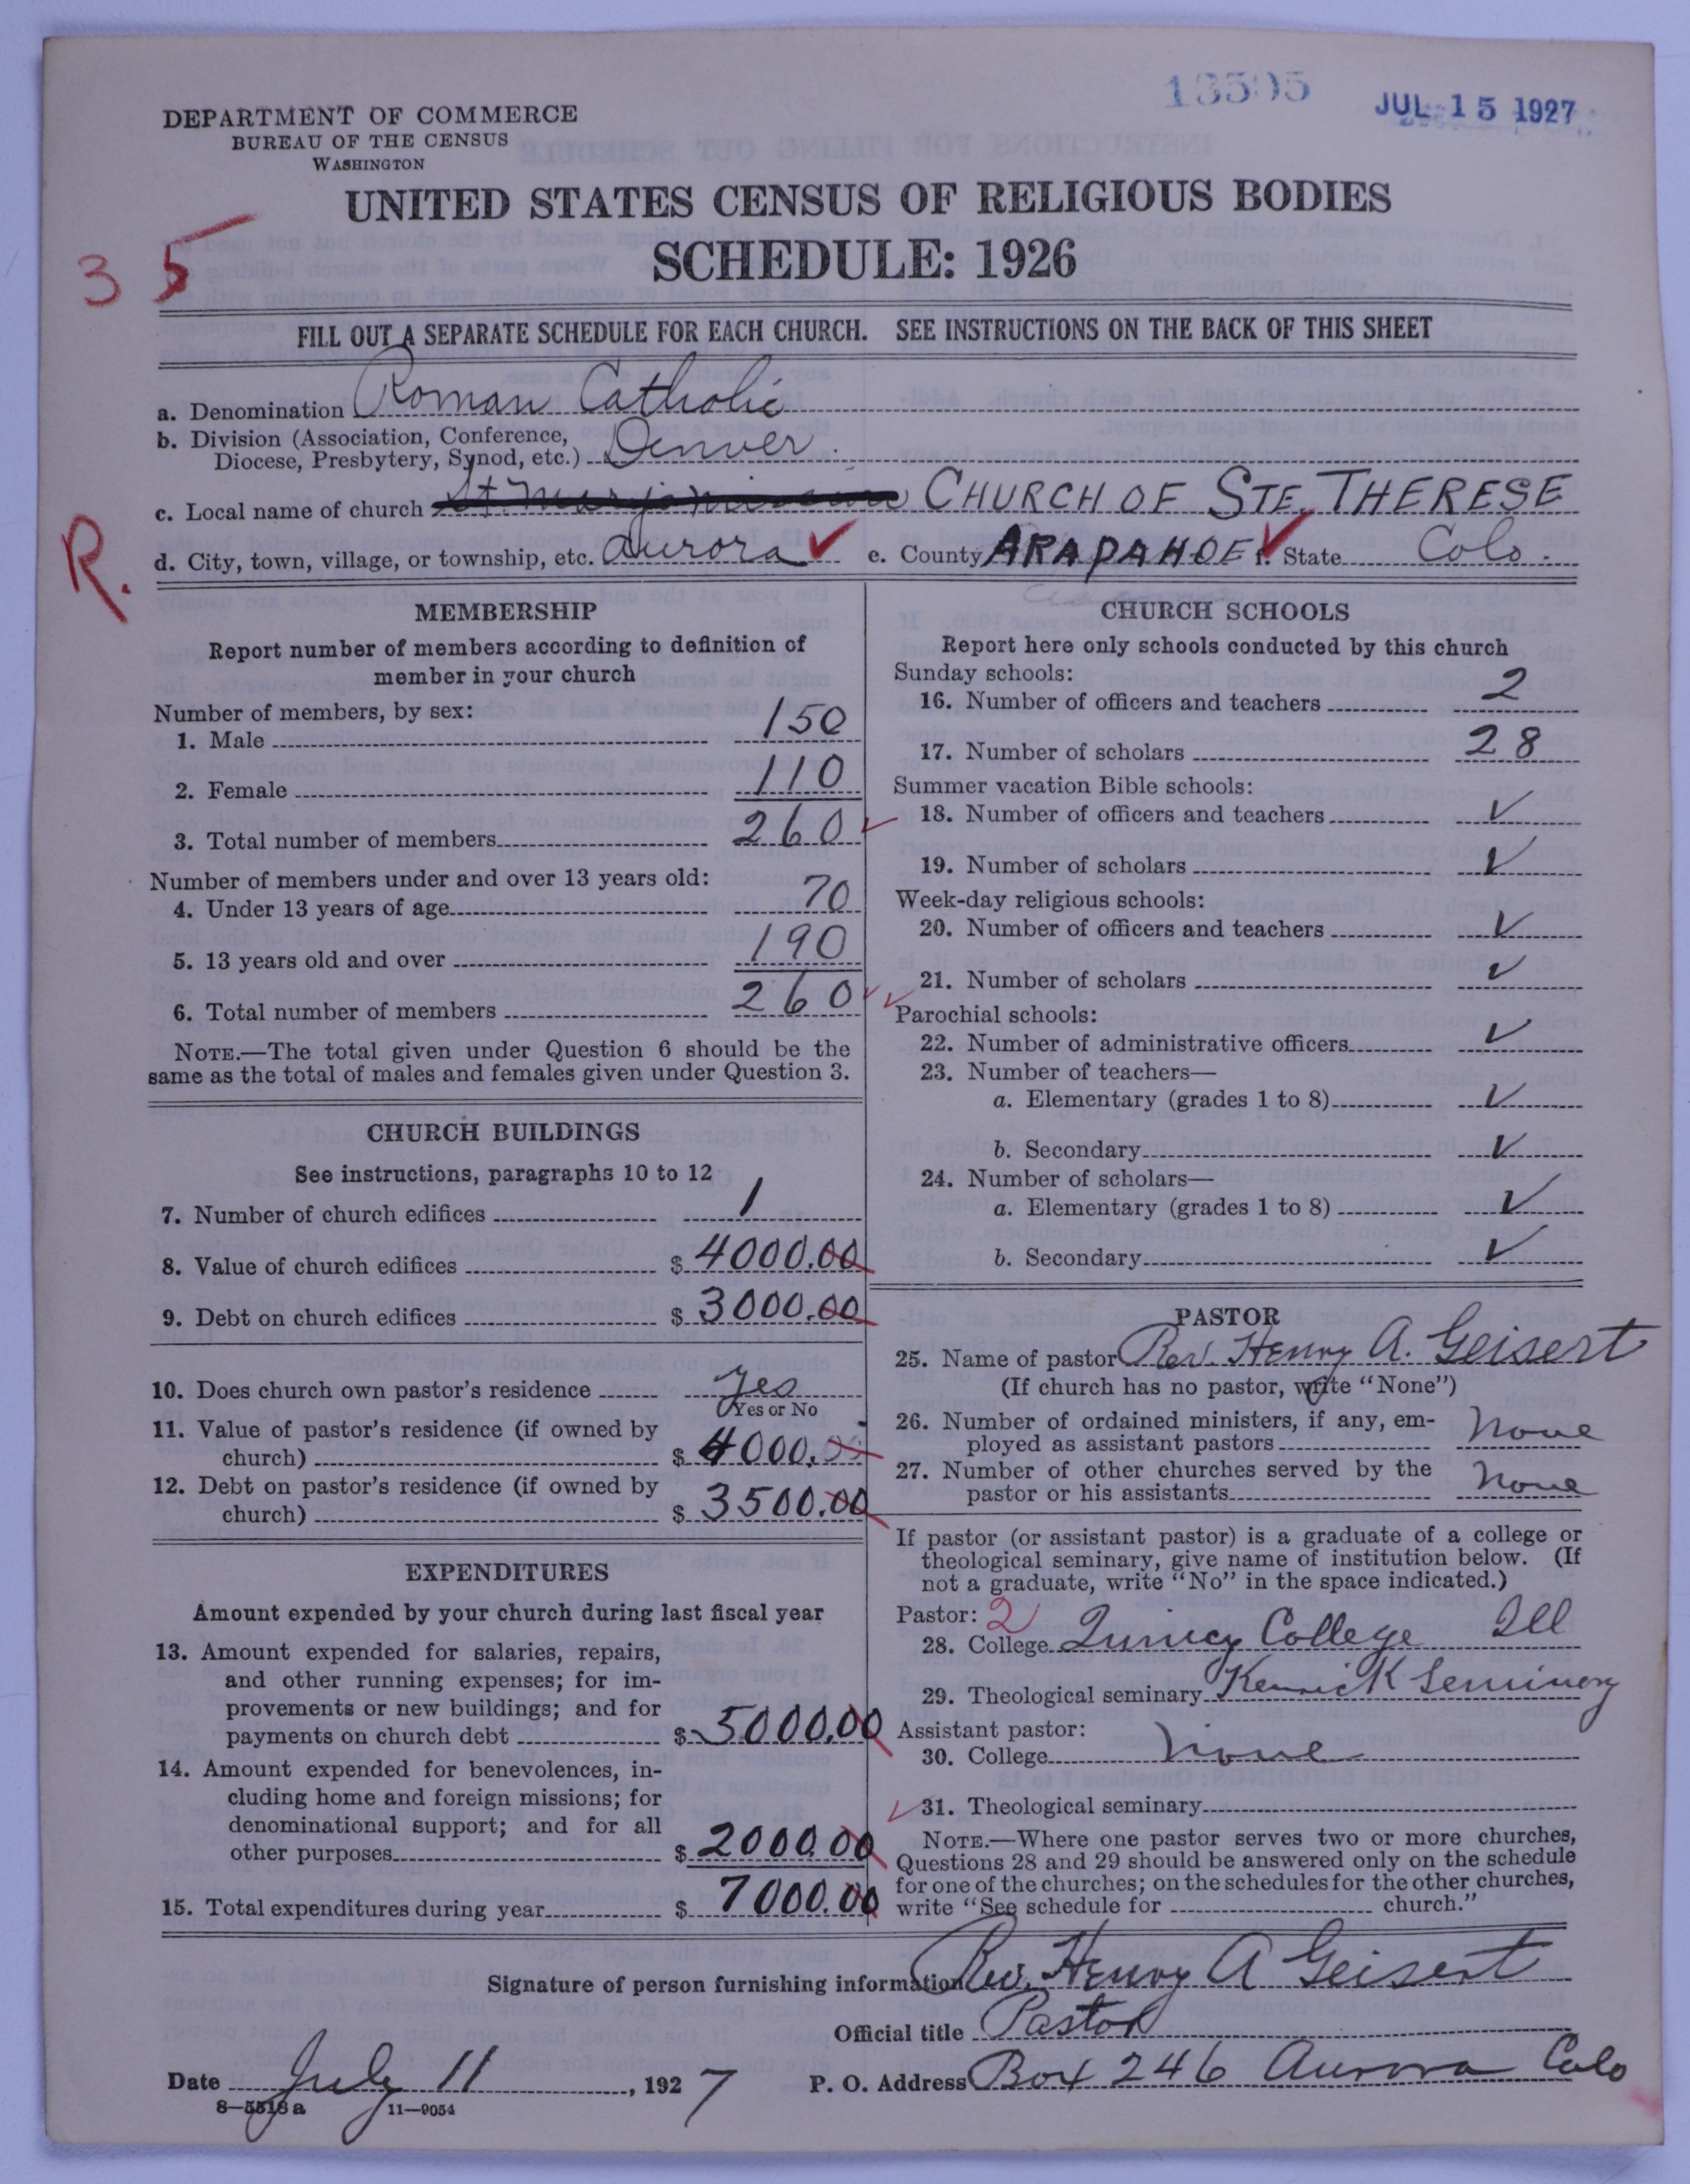 13595 JUL 15 1927
DEPARTMENT OF COMMERCE
BUREAU OF THE CENSUS
WASHINGTON
UNITED STATES CENSUS OF RELIGIOUS BODIES
35
SCHEDULE: 1926
FILL OUT A SEPARATE SCHEDULE FOR EACH CHURCH. SEE INSTRUCTIONS ON THE BACK OF THIS SHEET
a. Denomination Roman Catholic
b. Division (Association, Conference,
Diocese, Presbytery, Synod, etc.) Denver
c. Local name of church St. Mary's CHURCH OF STE. THERESE
R.
d. City, town, village, or township, etc. Aurora ✓ e. County ARAPAHOE ✓ f. State Colo.
MEMBERSHIP
Report number of members according to definition of
member in your church
Number of members, by sex:
1. Male 150
2. Female 110
3. Total number of members 260 ✓
Number of members under and over 13 years old:
4. Under 13 years of age 70
5. 13 years old and over 190
6. Total number of members 260 ✓✓
NOTE.—The total given under Question 6 should be the
same as the total of males and females given under Question 3.
CHURCH BUILDINGS
See instructions, paragraphs 10 to 12
7. Number of church edifices 1
8. Value of church edifices $ 4000.00
9. Debt on church edifices $ 3000.00
10. Does church own pastor's residence yes
Yes or No
11. Value of pastor's residence (if owned by
church) $ 4000.00
12. Debt on pastor's residence (if owned by
church) $ 3500.00
EXPENDITURES
Amount expended by your church during last fiscal year
13. Amount expended for salaries, repairs,
and other running expenses; for im-
provements or new buildings; and for
payments on church debt $ 5000.00
14. Amount expended for benevolences, in-
cluding home and foreign missions; for
denominational support; and for all
other purposes $ 2000.00
15. Total expenditures during year $ 7000.00
CHURCH SCHOOLS
Report here only schools conducted by this church
Sunday schools:
16. Number of officers and teachers 2
17. Number of scholars 28
Summer vacation Bible schools:
18. Number of officers and teachers ✓
19. Number of scholars ✓
Week-day religious schools:
20. Number of officers and teachers ✓
21. Number of scholars ✓
Parochial schools:
22. Number of administrative officers ✓
23. Number of teachers—
a. Elementary (grades 1 to 8) ✓
b. Secondary ✓
24. Number of scholars—
a. Elementary (grades 1 to 8) ✓
b. Secondary ✓
PASTOR
25. Name of pastor Rev. Henry A. Geisert
(If church has no pastor, write "None")
26. Number of ordained ministers, if any, em-
ployed as assistant pastors None
27. Number of other churches served by the
pastor or his assistants None
If pastor (or assistant pastor) is a graduate of a college or
theological seminary, give name of institution below. (If
not a graduate, write "No" in the space indicated.)
Pastor: 2
28. College Quincy College Ill
29. Theological seminary Kenrick Seminary
Assistant pastor:
30. College None
✓ 31. Theological seminary
NOTE.—Where one pastor serves two or more churches,
Questions 28 and 29 should be answered only on the schedule
for one of the churches; on the schedules for the other churches,
write "See schedule for church."
Signature of person furnishing information Rev. Henry A Geisert
Official title Pastor
Date July 11, 1927 P. O. Address Box 246 Aurora Colo
8—5518 a 11—9054